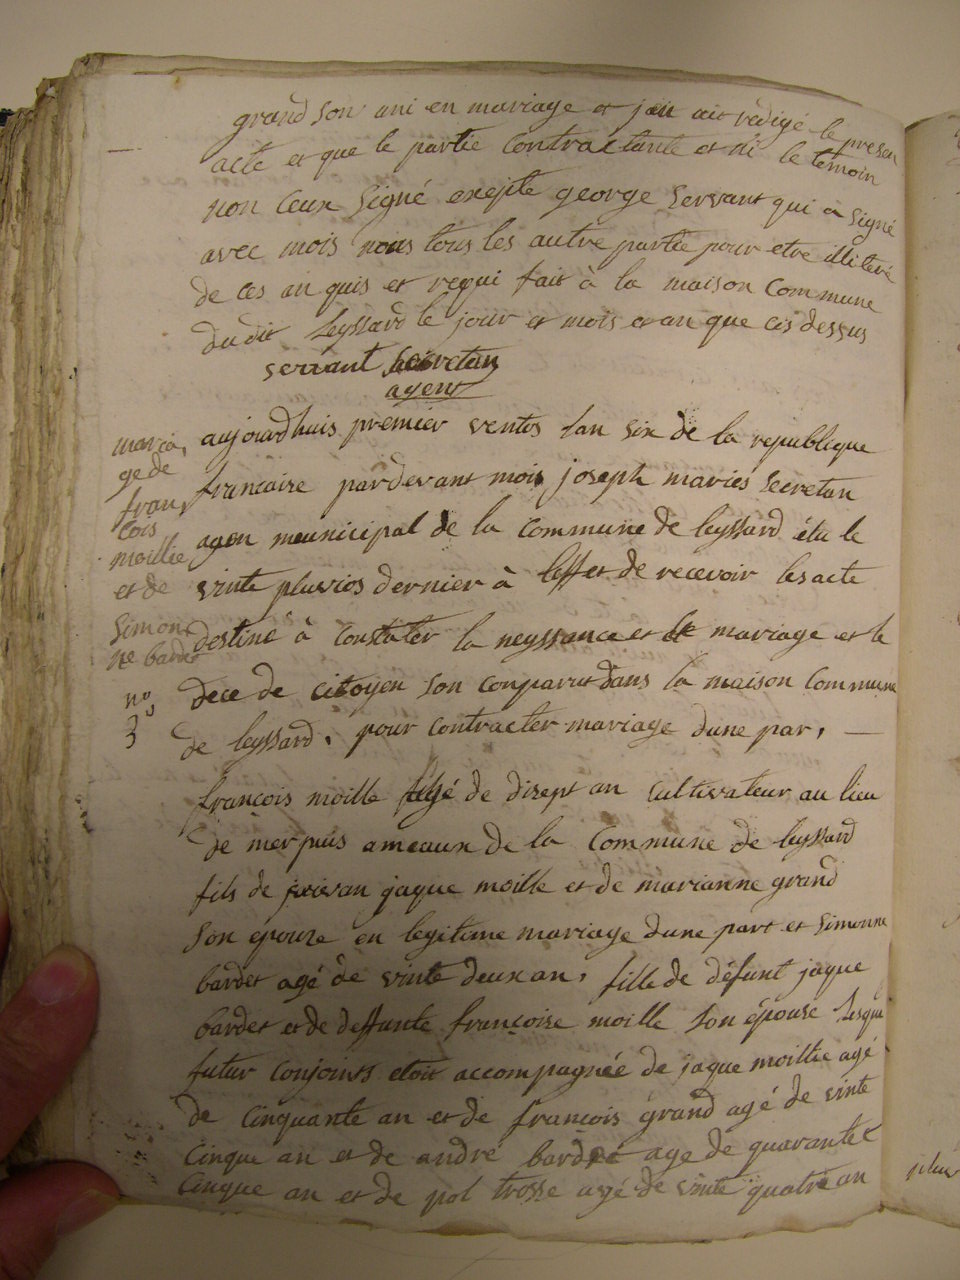 grand son uni en mariage et jan ait redigé le presen
acte et que le partie Contractante et ni le temoin
non ceux signé exepte george servant qui a signé
avec mois nous tous les autre partie pour etre illiteré
de ces an quis et requi fait à la maison Commune
dudit Leyssard le jour et mois et an que cis dessus
servant Secretan
agent
aujourdhuis premier ventos lan six de la republique
francaise pardevant mois joseph maries secretan
agen meunicipal de la Commune de leyssard élu le
vinte pluvios dernier à leffet de recevoir les acte
destine à Constater la neyssance et le mariage et le
dece de citoyen son conparut dans la maison Commune
de leyssard, pour contracter mariage dune par,
mariä,
ge de
fran,
cois
moillie
et de
simon
ne bardet
n°,
3
francois moille agé de disept an cultivateur au lieu
de merpuis ameaux de la Commune de leyssard
fils de jaque moille et de marianne grand
son epouse en legitime mariage dune part et simonne
bardet agé de vinte deux an, fille de défunt jaque
bardet et de deffunte françoise moille son épouse lesque
futur Conjoints etoit accompagnéé de jaque moillie agé
de Cinquante an et de francois grand agé de vinte
Cinque an et de andré bardet age de quarante
Cinque an et de pol trosse agé de vinte quatre an